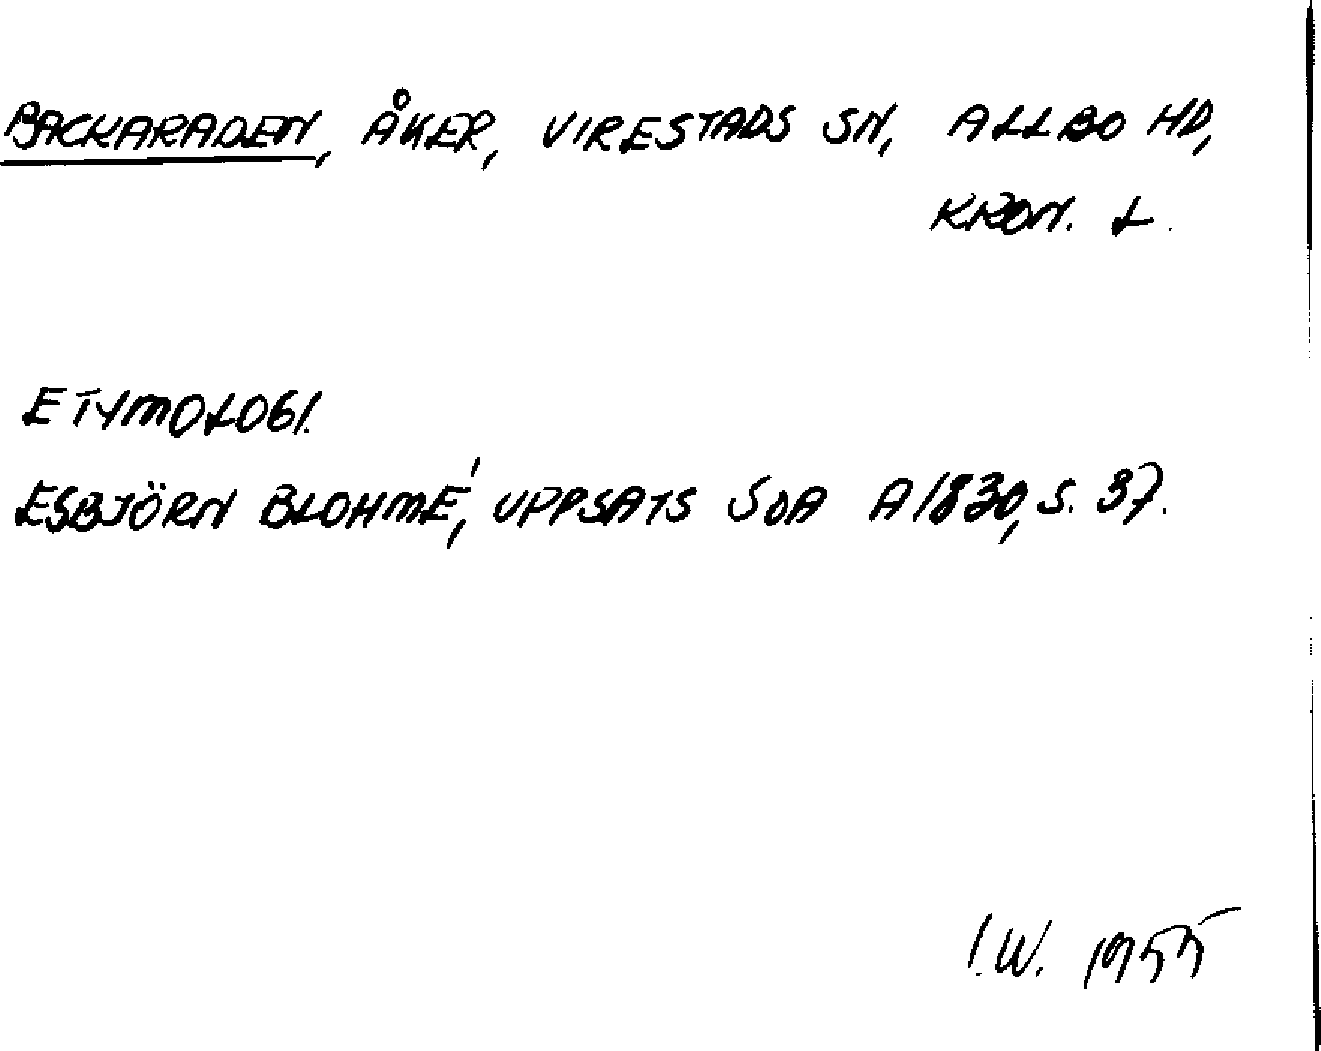 BACKARADEN, ÅKER, VIRESTADS SN, ALLBO HD,
KRON. L.
ETYMOLOGI.
ESBJÖRN BLOHMÉ, UPPSATS SOA A1830, S. 37.
I.W. 1955